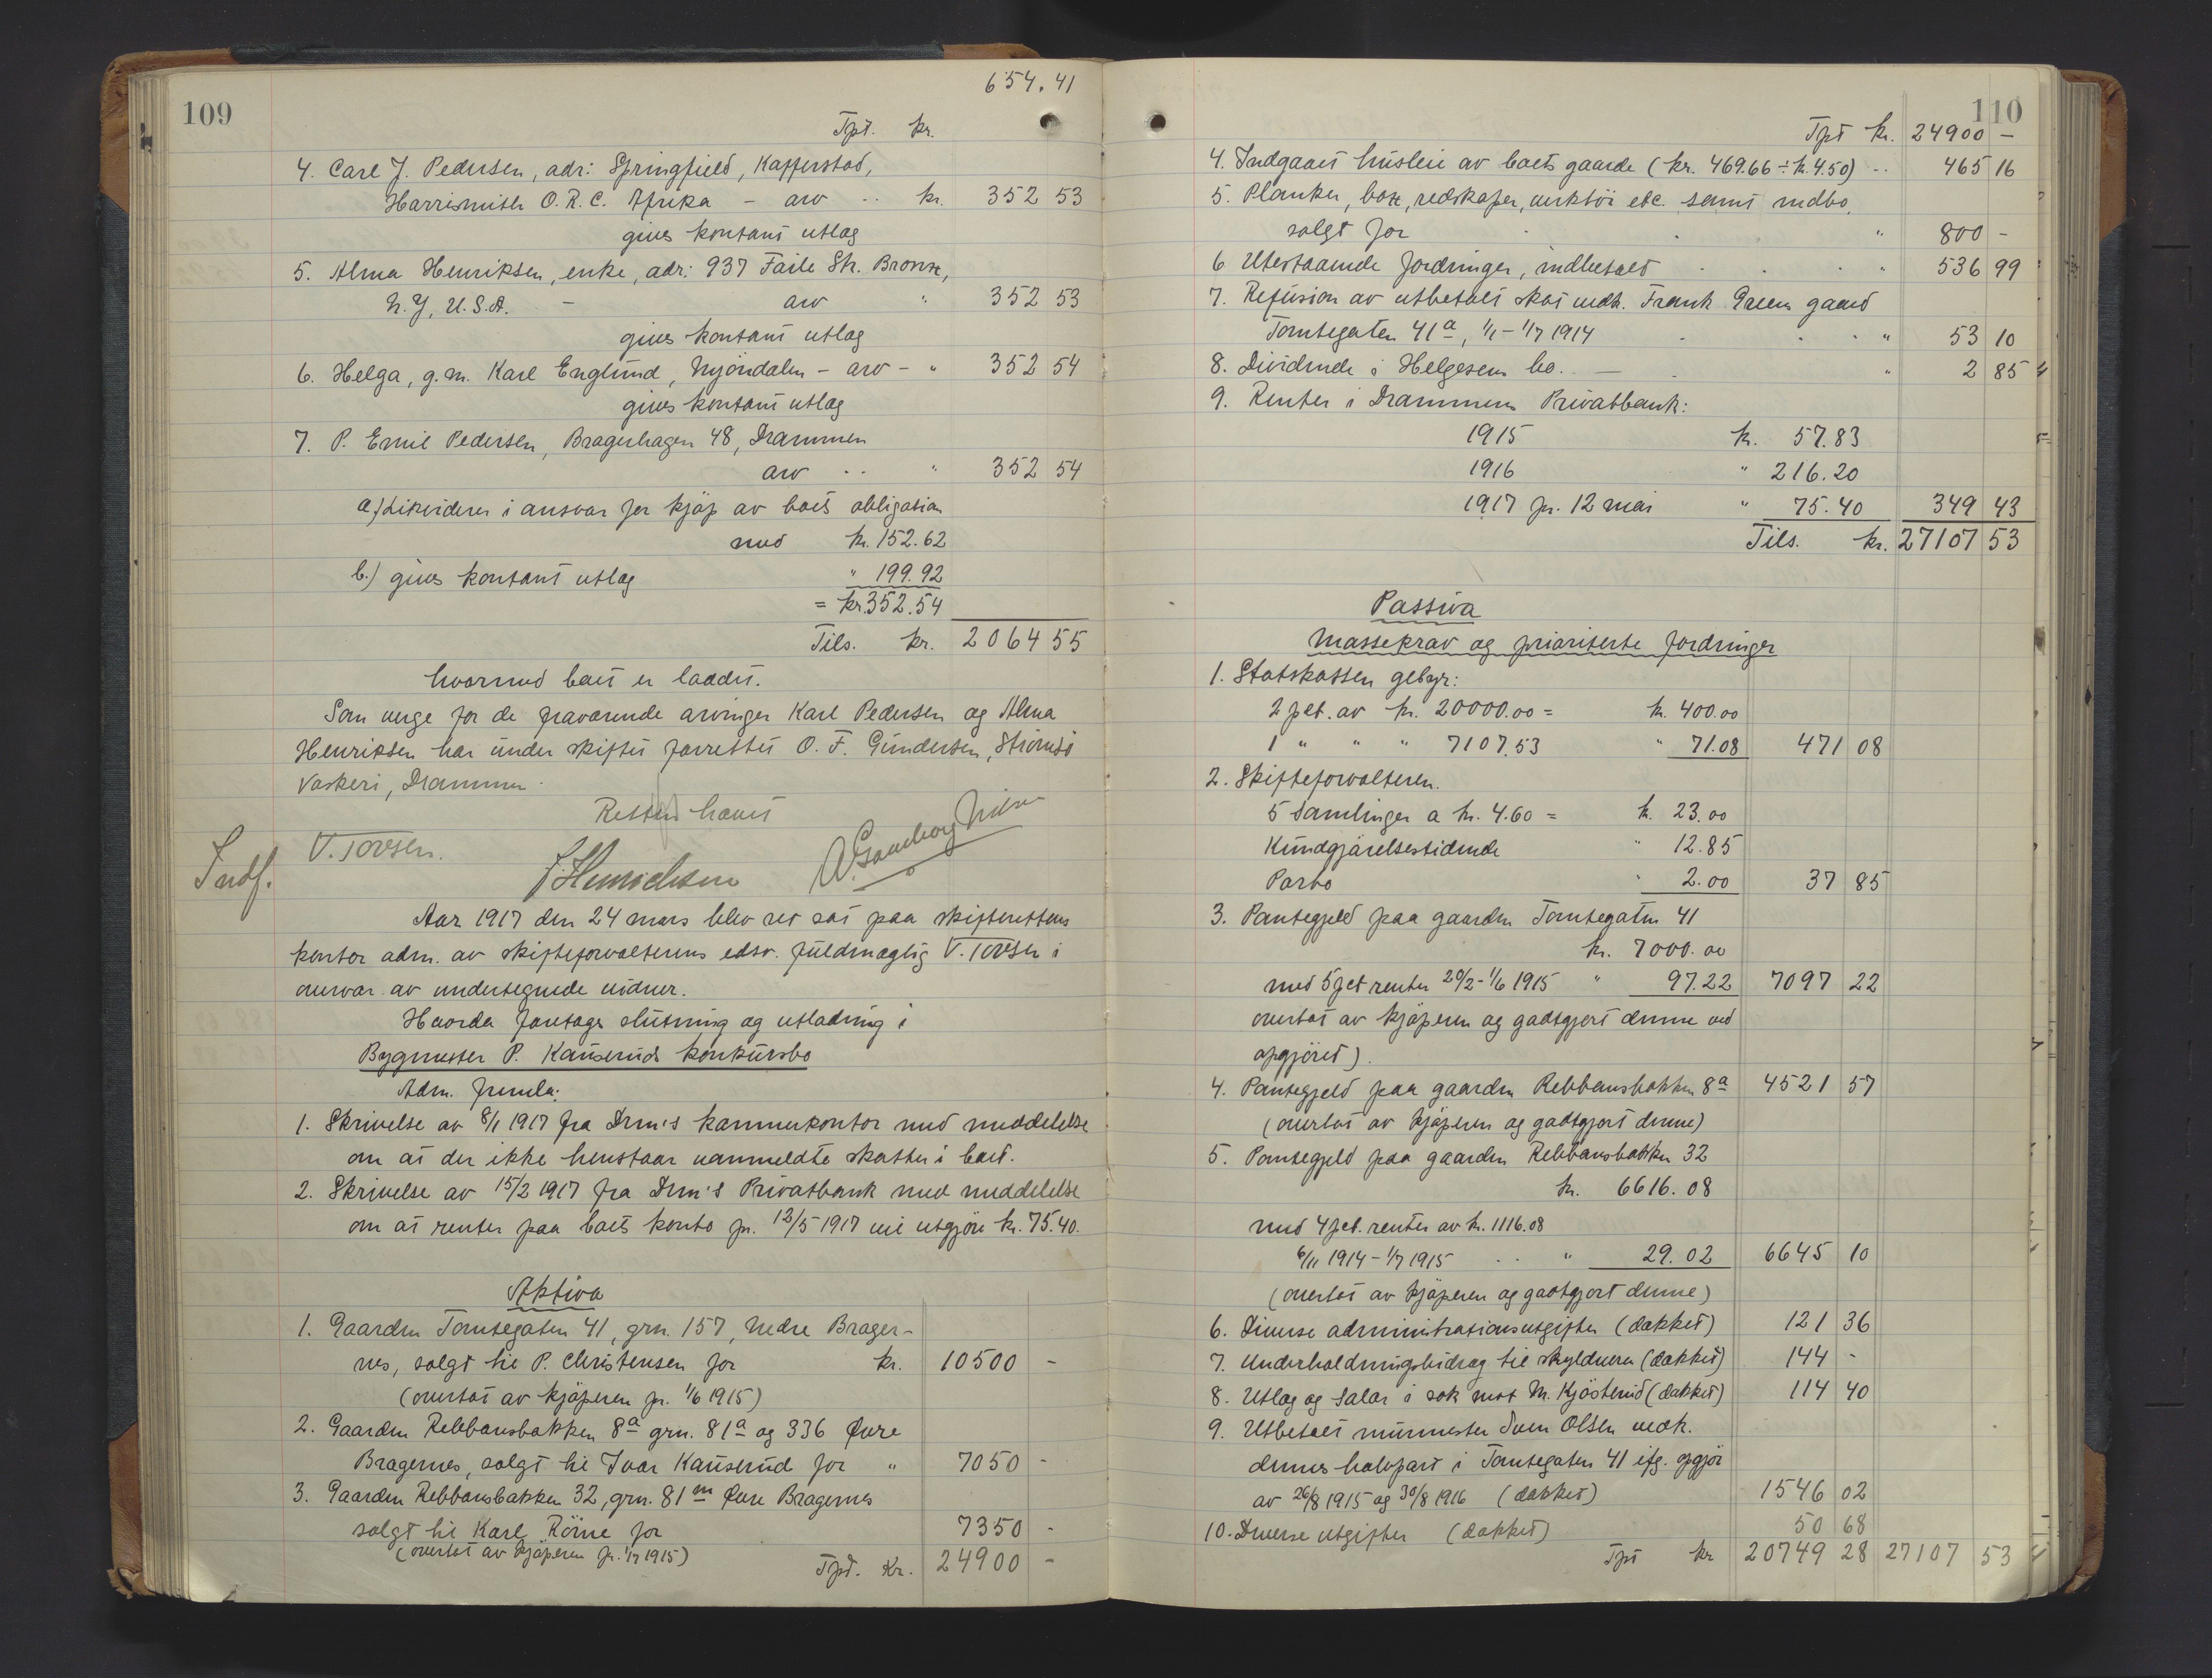 109
654.41
Tpt. kr.
4. Carl J. Pedersen, adr: Springfield, Kapperstad,
Harrismith O.R.C. Afrika - arv .. kr. 352 53
gives kontant utlæg
5. Alma Henriksen, enke, adr: 937 Faile Str. Bronx,
N.Y, U.S.A. - arv " 352 53
gives kontant utlæg
6. Helga, g.m. Karl Englund, Mjöndalen - arv - " 352 54
gives kontant utlæg
7. P. Emil Pedersen, Bragerhagen 48, Drammen
arv .. " 352 54
a.) Likviderer i ansvar for kjöp av boets obligation
med kr. 152.62
b.) gives kontant utlæg " 199.92
= kr. 352.54
Tils. kr. 2064 55
hvormed boet er laadet.
Som verge for de fraværende arvinger Karl Pedersen og Alma
Henriksen har under skiftet forrettet O. F. Gundersen, Strömsö
Vaskeri, Drammen.
Retten hævet
V. Tovsen.
Indf.
Aar 1917 den 24 mars blev ret sat paa skifterettens
kontor adm. av skifteforvalterens edsv. fuldmægtig V. Tovsen i
overvær av undertegnede vidner.
Hvorda foretages slutning og utlodning i
Bygmester P. Kauserud's konkursbo
Adm. fremla:
1. Skrivelse av 8/1 1917 fra Drm's kæmnerkontor med meddelelse
om at der ikke henstaar uanmeldte skatter i boet.
2. Skrivelse av 15/2 1917 fra Drm's Privatbank med meddelelse
om at renter paa boets konto pr. 12/5 1917 vil utgjöre kr. 75.40.
Aktiva
1. Gaarden Tomtegaten 41, grn. 157, Nedre Brager-
nes, solgt til P. Christensen for kr. 10500 -
(overtat av kjöperen pr. 1/6 1915)
2. Gaarden Rebbansbakken 8a grn. 81a og 336 Övre
Bragernes, solgt til Ivar Kauserud for " 7050 -
3. Gaarden Rebbansbakken 32, grn. 81m Övre Bragernes
solgt til Karl Röine for 7350 -
(overtat av kjöperen pr. 1/7 1915)
Tpt. Kr. 24900 -
110
Tpt kr. 24900 -
4. Indgaaet husleie av boets gaarde (kr. 469.66 ÷ kr. 4.50) .. 465 16
5. Planker, , redskaper, verktöi etc. samt indbo,
solgt for " 800 -
6 Utestaaende fordringer, indbetalt " 536 99
7. Refusion av utbetalt skat vedk. Frank Greens gaard
Tomtegaten 41a, 1/1 - 1/7 1914 " 53 10
8. Dividende i Helgesens bo. - " 2 85
9. Renter i Drammens Privatbank:
1915 kr. 57.83
1916 " 216.20
1917 pr. 12 mai " 75.40 349 43
Tils. kr. 27107 53
Passiva
Massekrav og prioriterte fordringer
1. Statskassen gebyr:
2 pct. av kr. 20000.00 = kr. 400.00
1 " " " 7107.53 " 71.08 471 08
2. Skifteforvalteren.
5 Samlinger a kr. 4.60 = kr. 23.00
Kundgjörelsestidende " 12.85
Porto " 2.00 37 85
3. Pantegjeld paa gaarden Tomtegaten 41
kr. 7000.00
med 5 pct renter 20/2 - 1/6 1915 " 97.22 7097 22
overtat av kjöperen og godtgjort denne ved
opgjöret).
4. Pantegjeld paa gaarden Rebbansbakken 8a 4521 57
(overtat av kjöperen og godtgjort denne)
5. Pantegjeld paa gaarden Rebbansbakken 32
kr. 6616.08
med 4 pct. renter av kr. 1116.08
6/11 1914 - 1/7 1915 .. " 29.02 6645 10
(overtat av kjöperen og godtgjort denne)
6. Diverse administrationsutgifter (dækket) 121 36
7. Underholdningsbidrag til skyldneren (dækket) 144 -
8. Utlæg og Salær i sak mot M. Kjösterud (dækket) 114 40
9. Utbetalt murmester Sven Olsen vedk.
dennes halvpart i Tomtegaten 41 iflg. opgjör
av 26/8 1915 og 30/8 1916 (dækket) 1546 02
10. Diverse utgifter (dækket) 50 68
Tpt kr 20749 28 27107 53